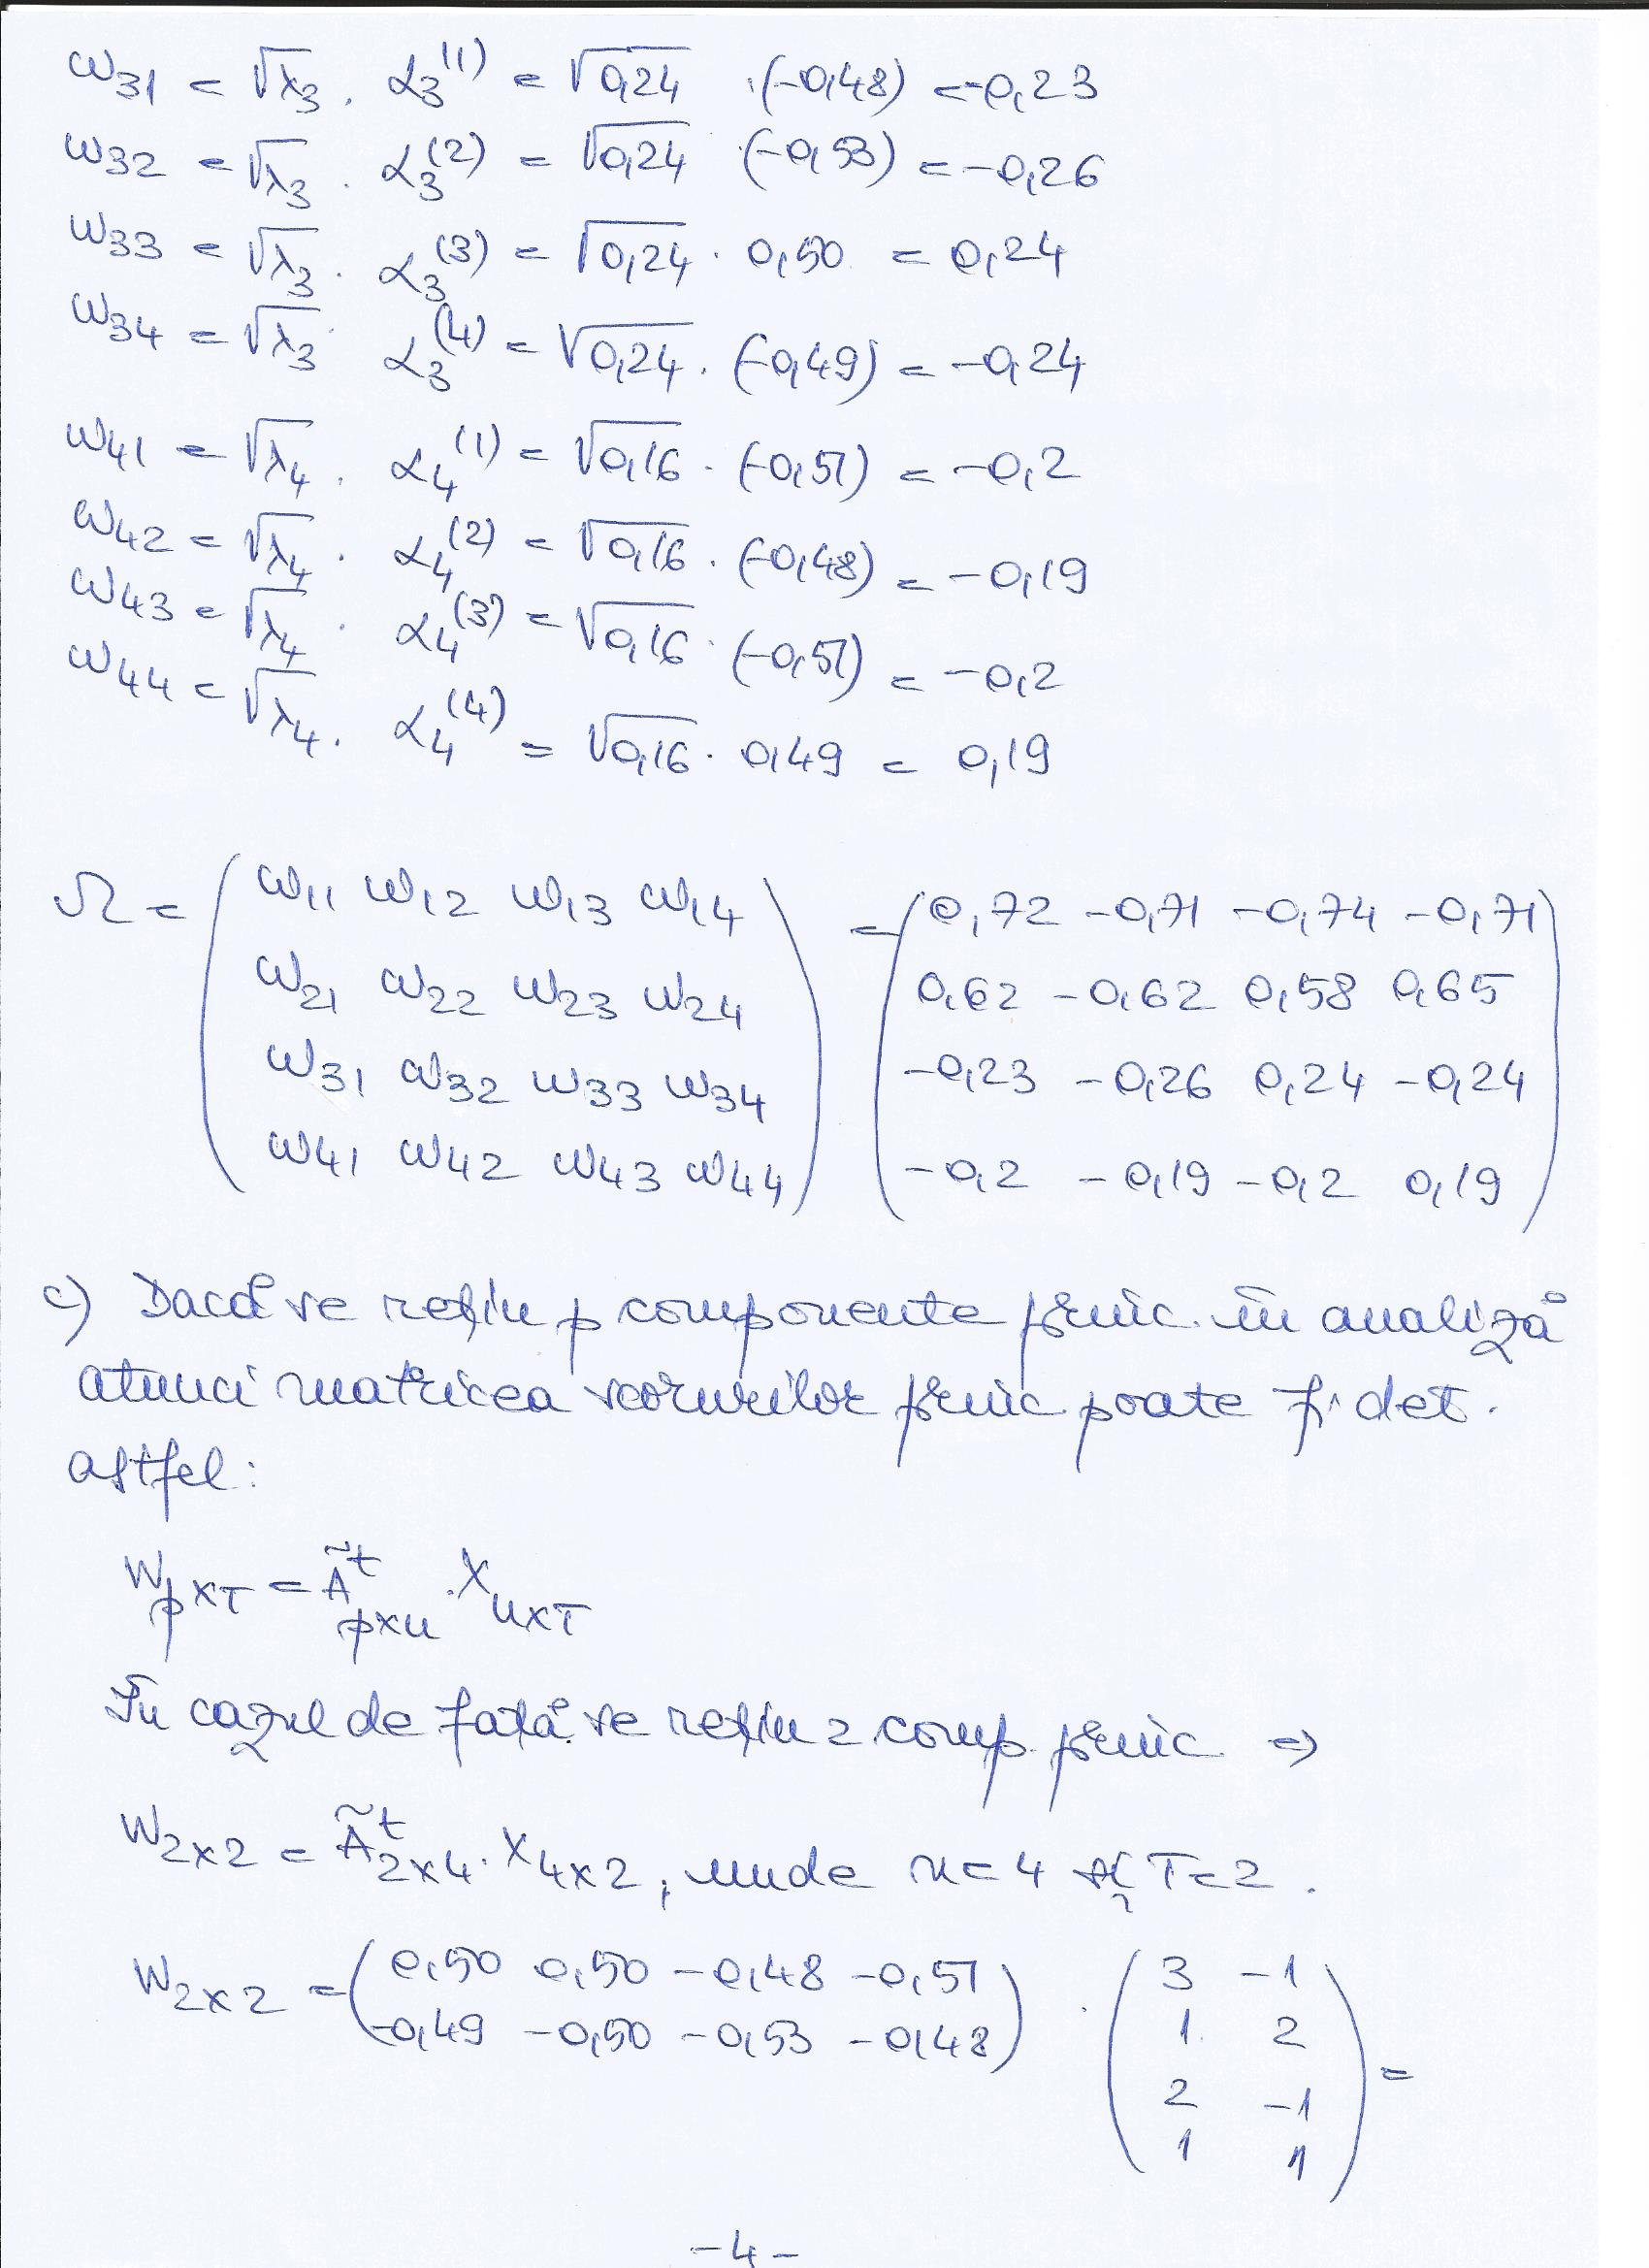 ω31 = √λ3 . α3^(1) = √0,24 .(-0,48) = -0,23
ω32 = √λ3 . α3^(2) = √0,24 .(-0,53) = -0,26
ω33 = √λ3 . α3^(3) = √0,24 . 0,50 = 0,24
ω34 = √λ3 . α3^(4) = √0,24 . (-0,49) = -0,24
ω41 = √λ4 . α4^(1) = √0,16 . (-0,51) = -0,2
ω42 = √λ4 . α4^(2) = √0,16 . (-0,48) = -0,19
ω43 = √λ4 . α4^(3) = √0,16 . (-0,51) = -0,2
ω44 = √λ4 . α4^(4) = √0,16 . 0,49 = 0,19
Ω = ( ω11 ω12 ω13 ω14 ) = ( 0,72 -0,71 -0,74 -0,71 )
ω21 ω22 ω23 ω24 0,62 -0,62 0,58 0,65
ω31 ω32 ω33 ω34 -0,23 -0,26 0,24 -0,24
ω41 ω42 ω43 ω44 -0,2 -0,19 -0,2 0,19
c) Dacă se rețin p componente princ. în analiză
atunci matricea scorurilor princ poate fi det.
astfel:
W p×T = Ã^t p×n . X n×T
În cazul de față se rețin 2 comp. princ ⇒
W2×2 = Ã^t 2×4 . X4×2, unde n=4 și T=2.
W2×2 = ( 0,50 0,50 -0,48 -0,51 ) . ( 3 -1 ) =
-0,49 -0,50 -0,53 -0,48 1 2
2 -1
1 1
-4-